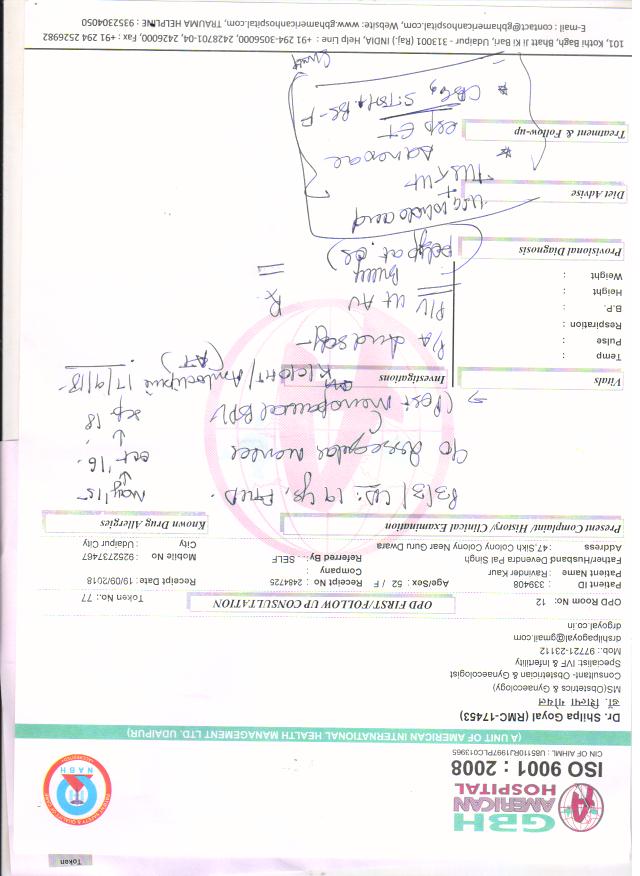 Token
GBH
AMERICAN
HOSPITAL
NABH
ISO 9001 : 2008
CIN OF AIHML : U85110RJ1997PLC013965
(A UNIT OF AMERICAN INTERNATIONAL HEALTH MANAGEMENT LTD. UDAIPUR)
Dr. Shilpa Goyal (RMC-17453)
डॉ. शिल्पा गोयल
MS(Obstetrics & Gynaecology)
Consultant- Obstetrician & Gynaecologist
Specialist: IVF & Infertility
Mob.: 97721-23112
drshilpagoyal@gmail.com
drgoyal.co.in
OPD Room No: 12
OPD FIRST/FOLLOW UP CONSULTATION
Token No.: 77
Patient ID : 339408
Age/Sex : 52 / F Receipt No : 2484725
Receipt Date : 19/09/2018
Patient Name : Ravinder Kaur
Company :
Mobile No : 9252737467
Father/Husband Devendra Pal Singh
Referred By: SELF
City : Udaipur City
Address : 47,Sikh Colony Colony Near Guru Dwara
Present Complaint/ History/ Clinical Examination
Known Drug Allergies
P3L3 / LD: 19 yr,
May/15
Oct '16
Sep 18
(Post menopausal BPV
Vitals
Investigations
17/9/18
Temp :
Pulse :
Respiration :
B.P. :
Height :
Weight :
P/A
P/V Ut AV
Bulky
Provisional Diagnosis
polyp at os)
Diet Advise
USG whole abd
+
TVS
Treatment & Follow-up
CBC, S.TSH, BS-F
101, Kothi Bagh, Bhatt Ji Ki Bari, Udaipur - 313001 (Raj.) INDIA, Help Line : +91 294-3056000, 2428701-04, 2426000, Fax : +91 294 2526982
E-mail : contact@gbhamericanhospital.com, Website: www.gbhamericanhospital.com, TRAUMA HELPLINE : 9352304050